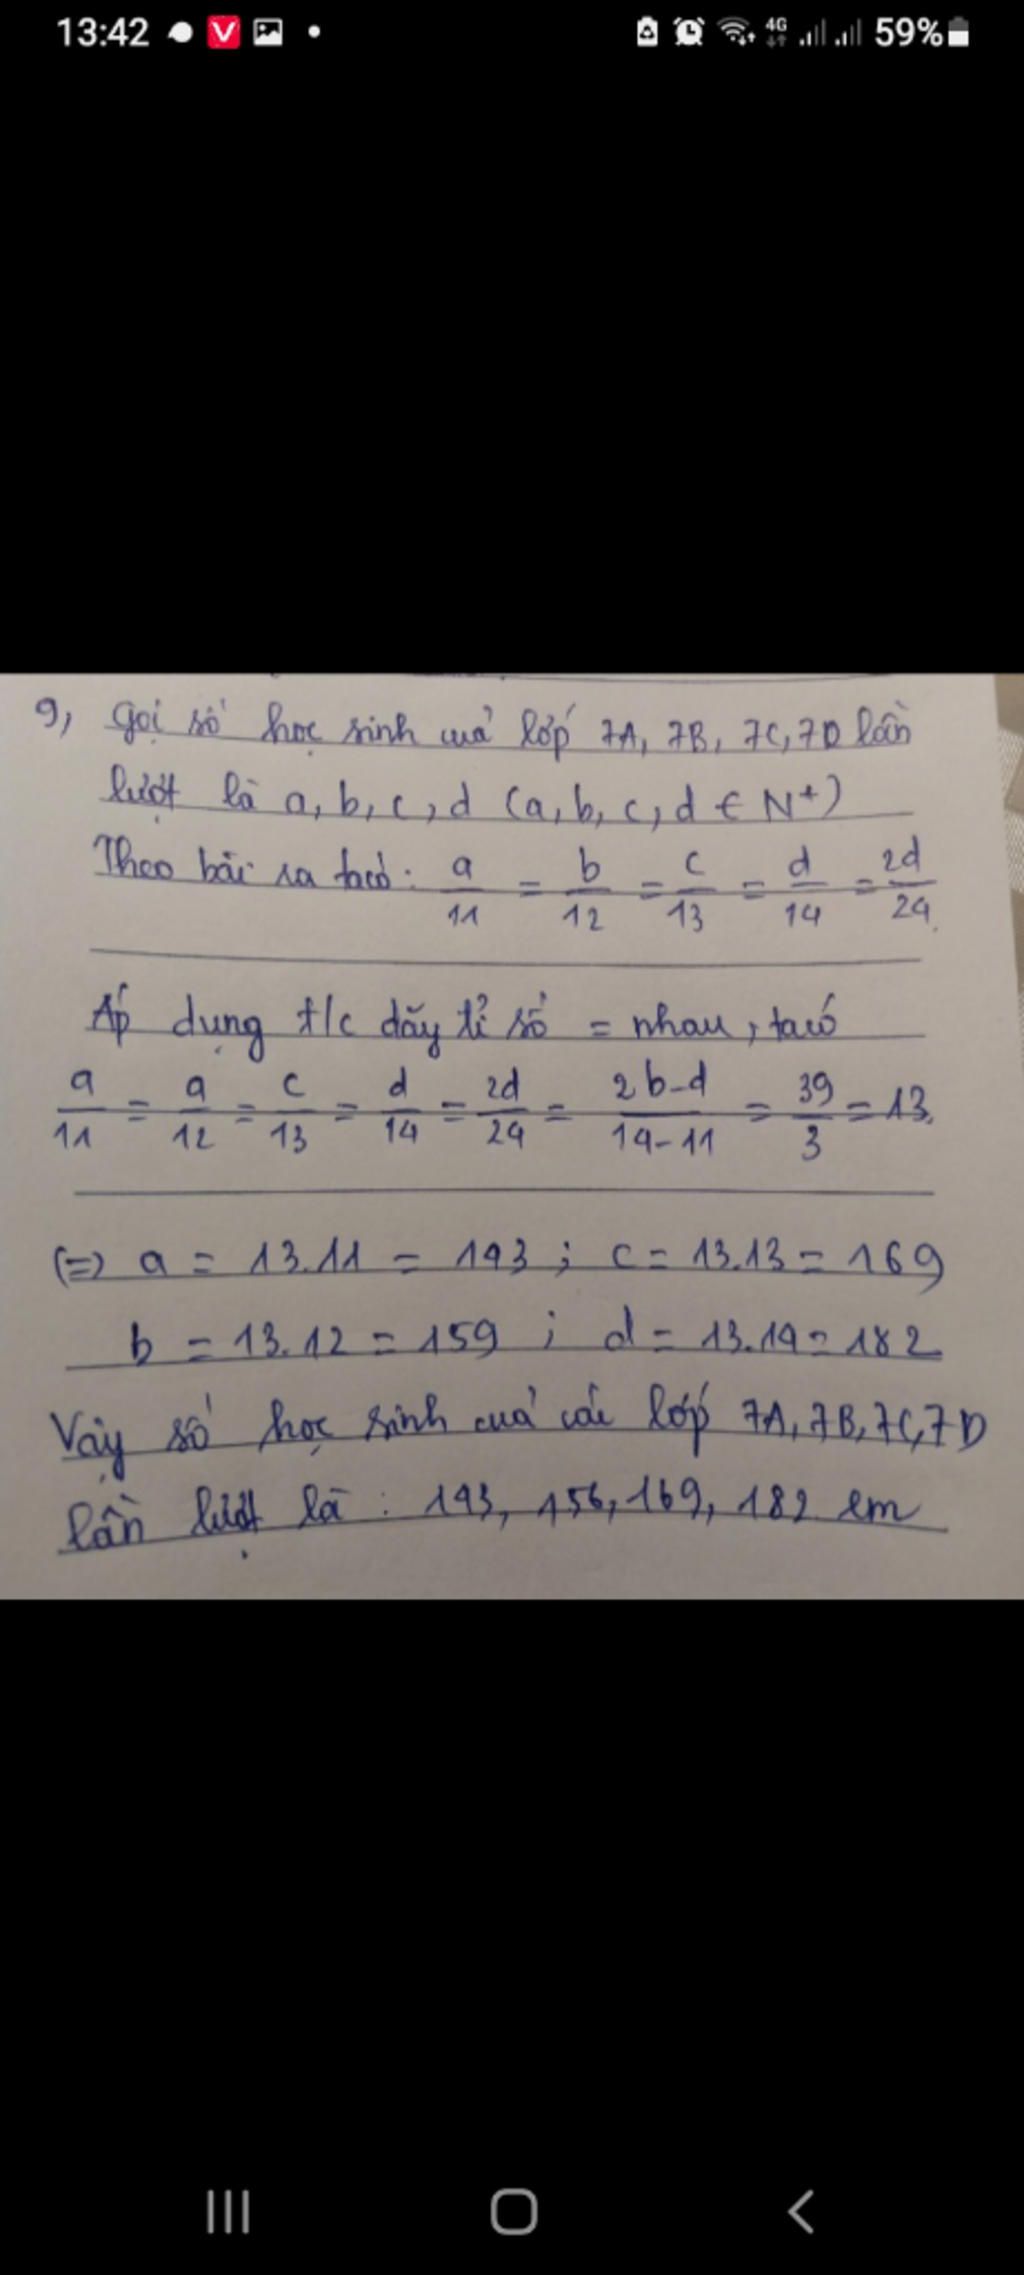 13:42 V 4G 59%
9, Gọi số học sinh cuả lớp 7A, 7B, 7C, 7D lần
lượt là a, b, c, d (a, b, c, d € N+)
Theo bài ra ta có: a/11 = b/12 = c/13 = d/14 = 2d/24.
Áp dụng t/c dãy tỉ số = nhau, ta có
a/11 = a/12 = c/13 = d/14 = 2d/24 = 2b-d/14-11 = 39/3 = 13.
(=) a = 13.11 = 143 ; c = 13.13 = 169
b = 13.12 = 159 ; d = 13.14 = 182
Vậy số học sinh cuả các lớp 7A, 7B, 7C, 7D
lần lượt là : 143, 156, 169, 182 em